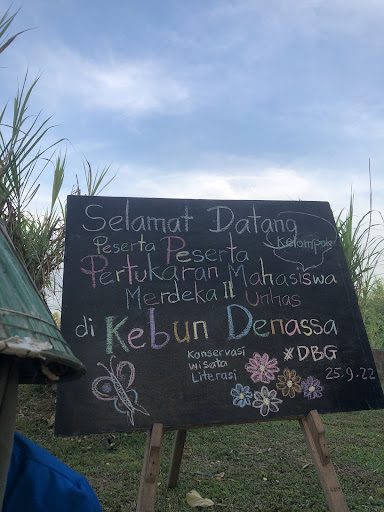 Selamat Datang
Peserta Peserta Kelompok
Pertukaran Mahasiswa
Merdeka II Unhas
di Kebun Denassa
Konservasi
wisata
Literasi
#DBG
25.9.22